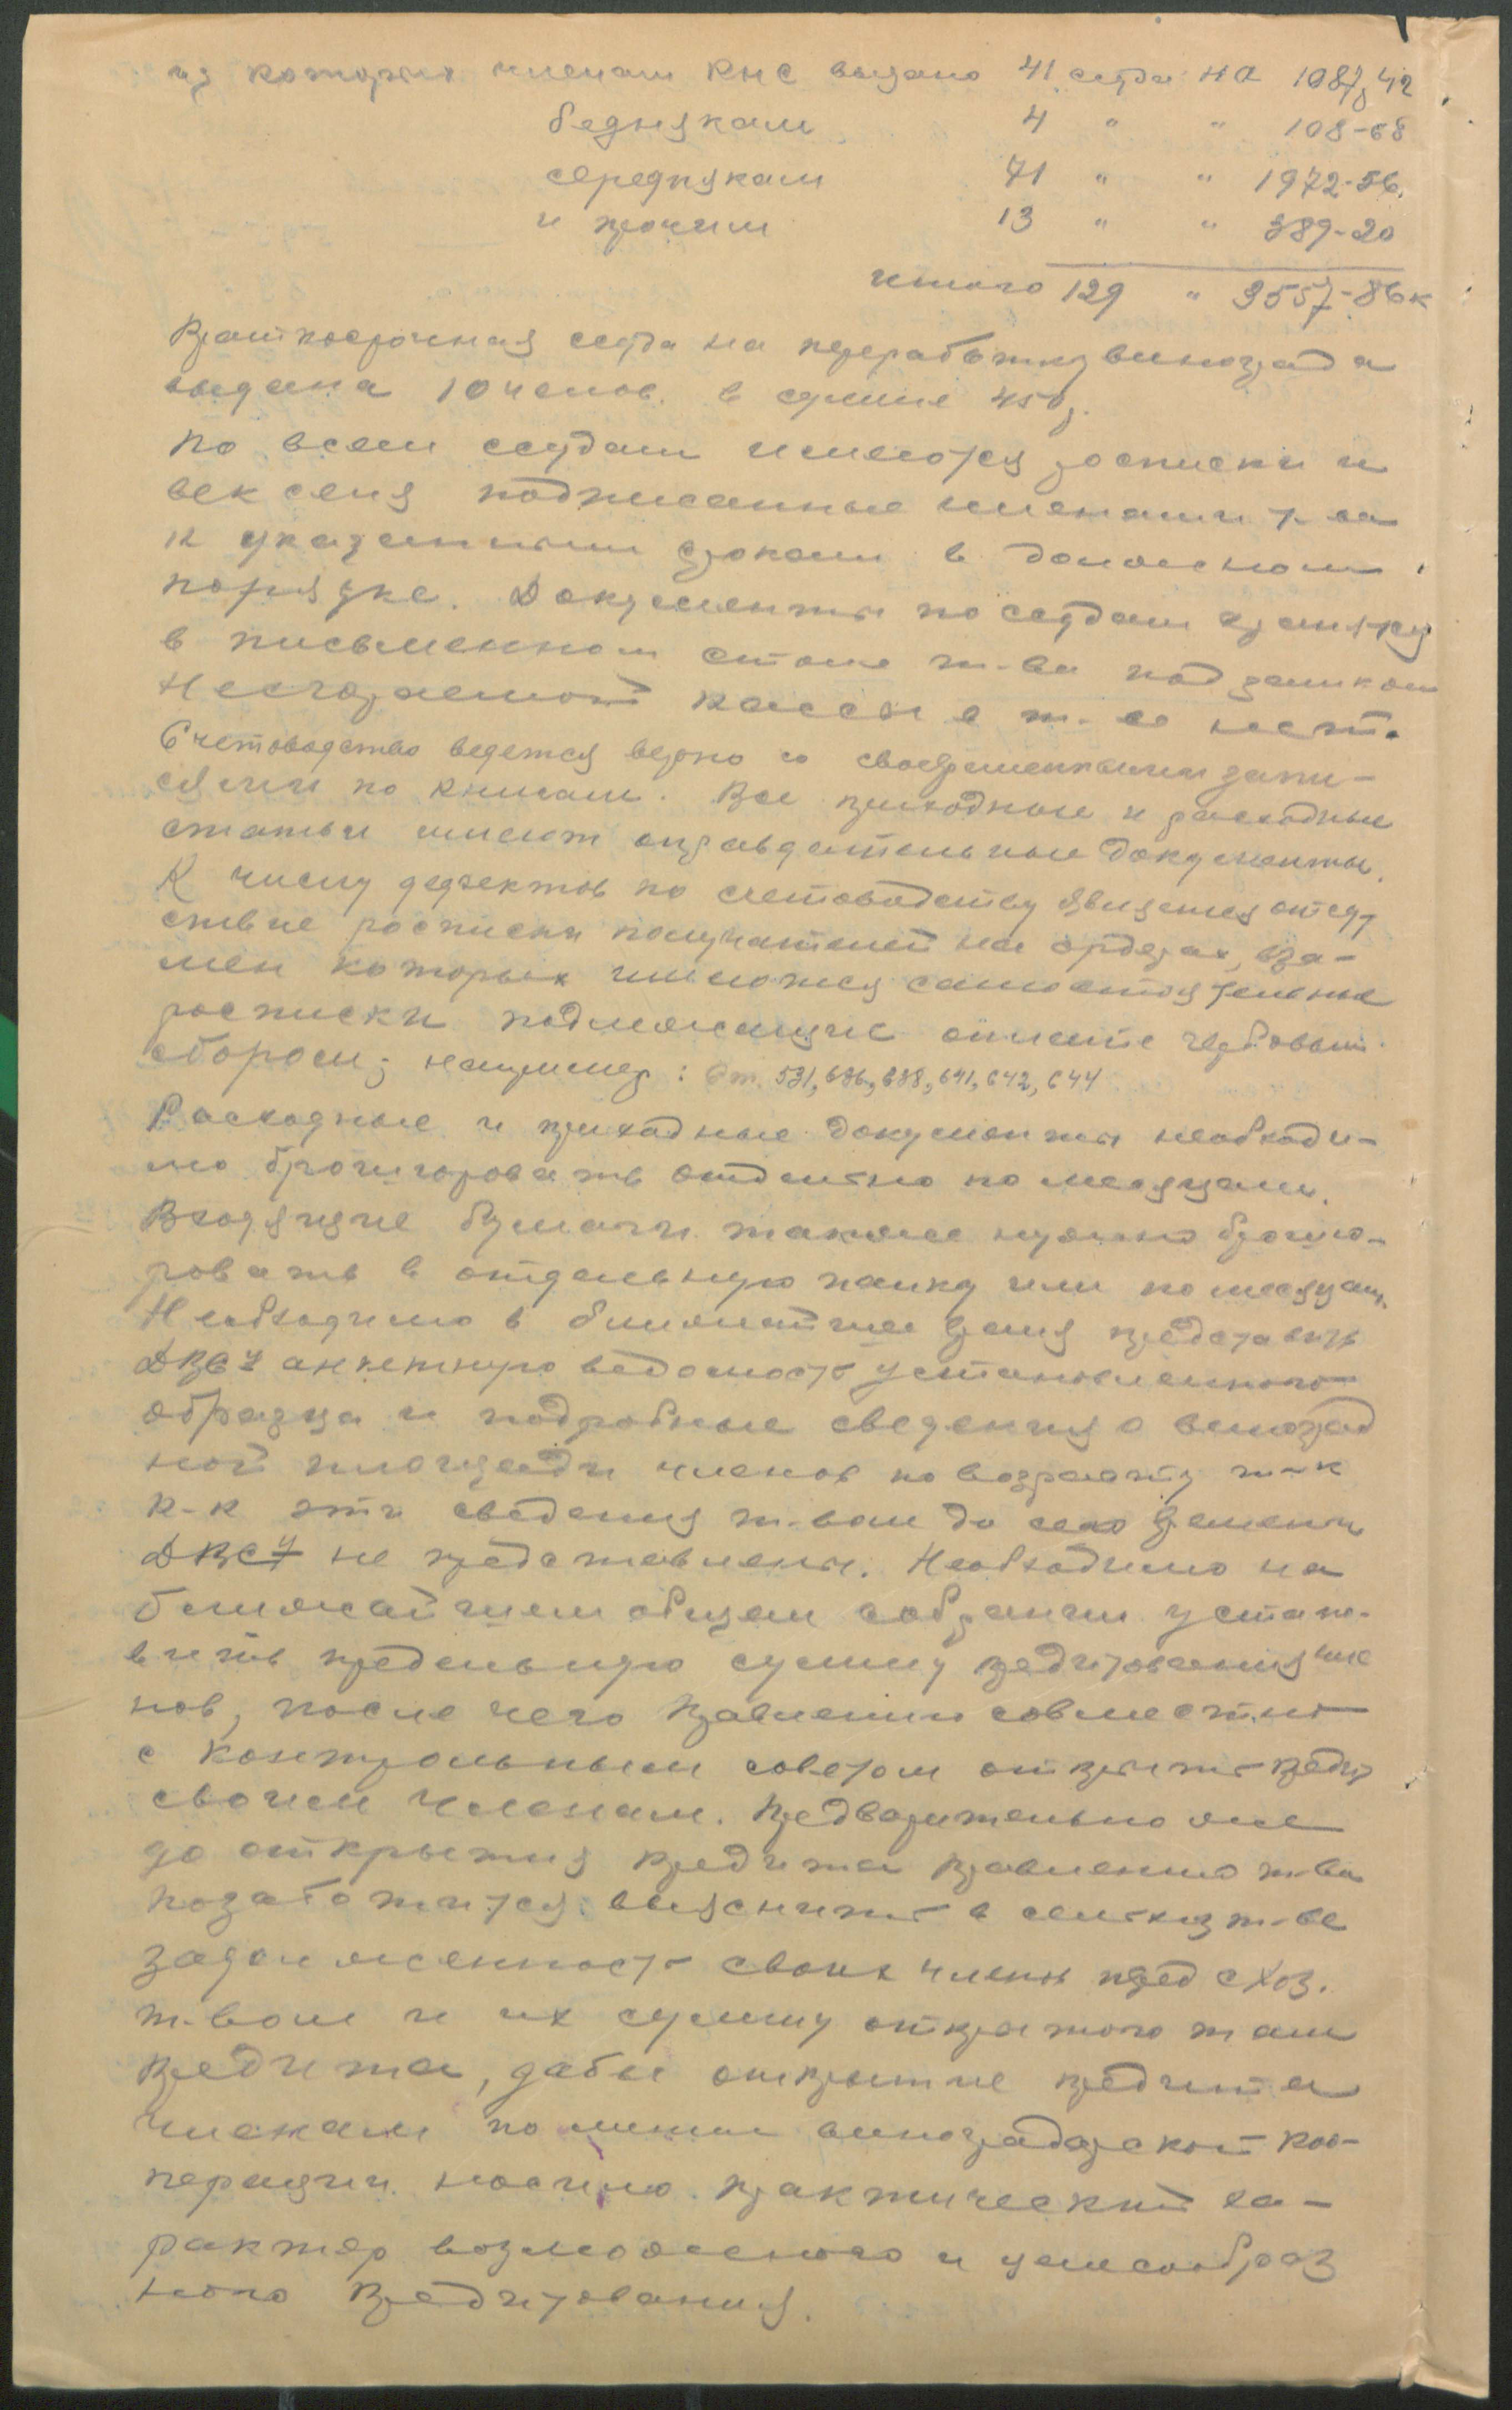 из которых членам КНС выдано 41 ссуда на 1087,42
беднякам 4 " " 108-68
середнякам 71 " " 1972-56.
и прочим 13 " " 389-20
итого 129 " 3557-86к
Краткосрочная ссуда на переработку винограда
выдана 10 члнов. в сумме 450р.
По всем ссудам имеются росписки и
векселя подписанные членами т-ва
к указанным срокам в должном
порядке. Документы по ссудам хранятся
в письменном столе т-ва под замком
Несгораемой кассы в т-ве нет.
Счетоводство ведется верно со своевременными запи-
сями по книгам. Все приходные и расходные
статьи имеют оправдательные документы.
К числу дефектов по счетоводству является отсут
ствие росписки получателей на ордерах, вза-
мен которых имеются самостоятельные
росписки подлежащие оплате гербовым
сбором; например: Ст. 531, 636, 638, 641, 642, 644
Расходные и приходные документы необходи-
мо брошюровать отдельно по месяцам.
Входящие бумаги также нужно брошю-
ровать в отдельную папку или по месяцам.
Необходимо в ближайшее время представить
анкетную ведомость установленного
образца и подробные сведения о виноград
ной площади членов по возрасту т-к
к-к эти сведения т-вом до сего времени
не представлены. Необходимо на
ближайшем общем собрании устано-
вить предельную сумму кредитования чле
нов, после чего Правлении совместно
с контрольным советом открыть кредит
своим членам. Предварительно же
до открытия кредита правлению т-ва
позаботиться выяснить в сельхоз т-ве
задолженность своих членов пред с хоз.
т-вом и их сумму открытого там
кредита, дабы открытие кредита
членам по линии виноградарской коо-
перации носило практический ха-
рактер возможного и целесообраз
ного кредитования.